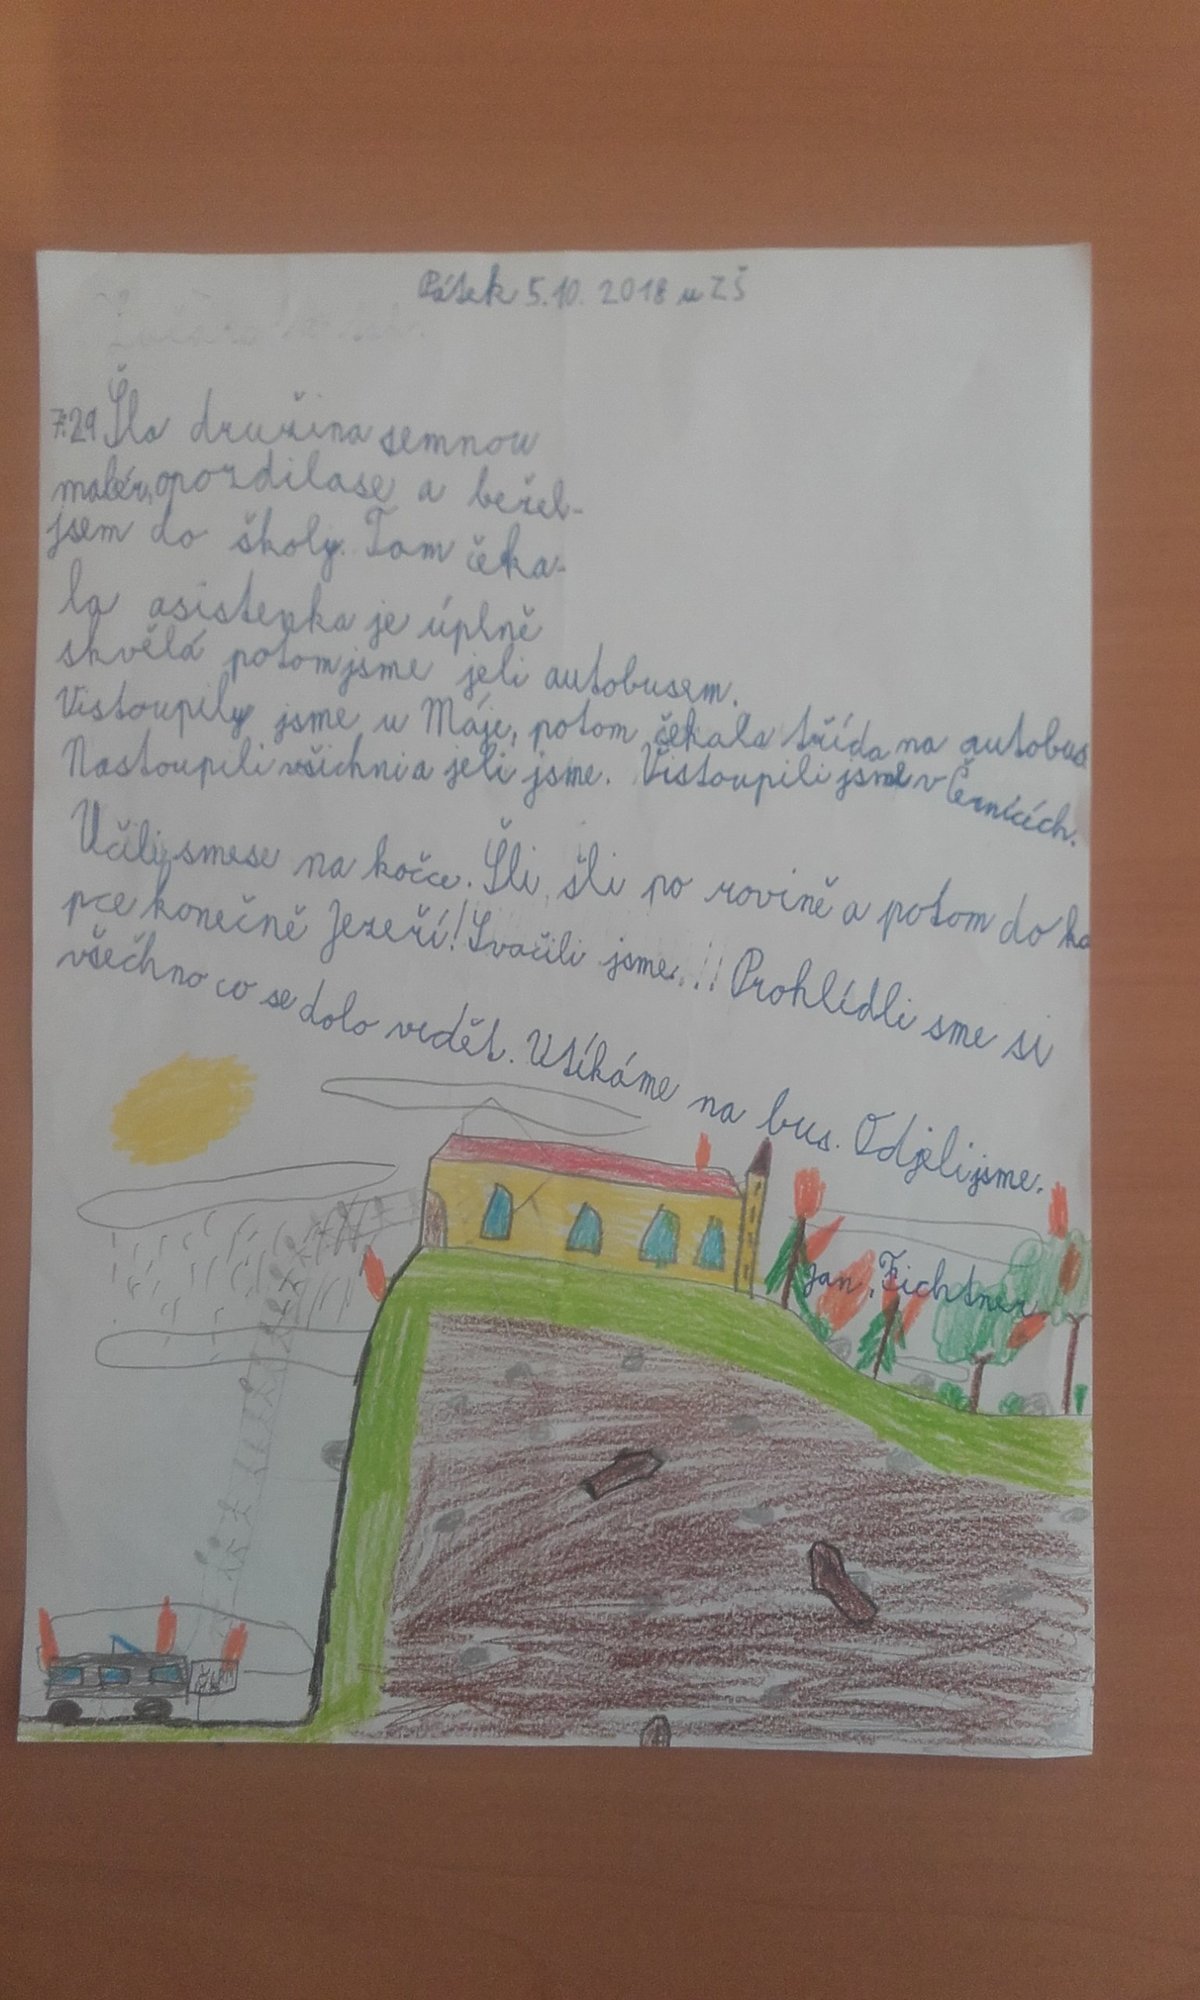 Pátek 5.10. 2018 u ZŠ
7:29 Šla družina semnou
malér, opozdilase a bežel-
jsem do školy. Tam čeka-
la asistenka je úplně
skvělá potom jsme jeli autobusem.
Vistoupily jsme u Máje, potom čekala třída na autobus
Nastoupili všichni a jeli jsme. Vistoupili jsme v Černicích.
Učili smese na kočce. Šli, šli po rovině a potom do ko
pce konečně Jezeří! Svačili jsme!! Prohlídli sme si
všechno co se dolo vidět. Utíkáme na bus. Odjeli jsme.
Jan Fichtner